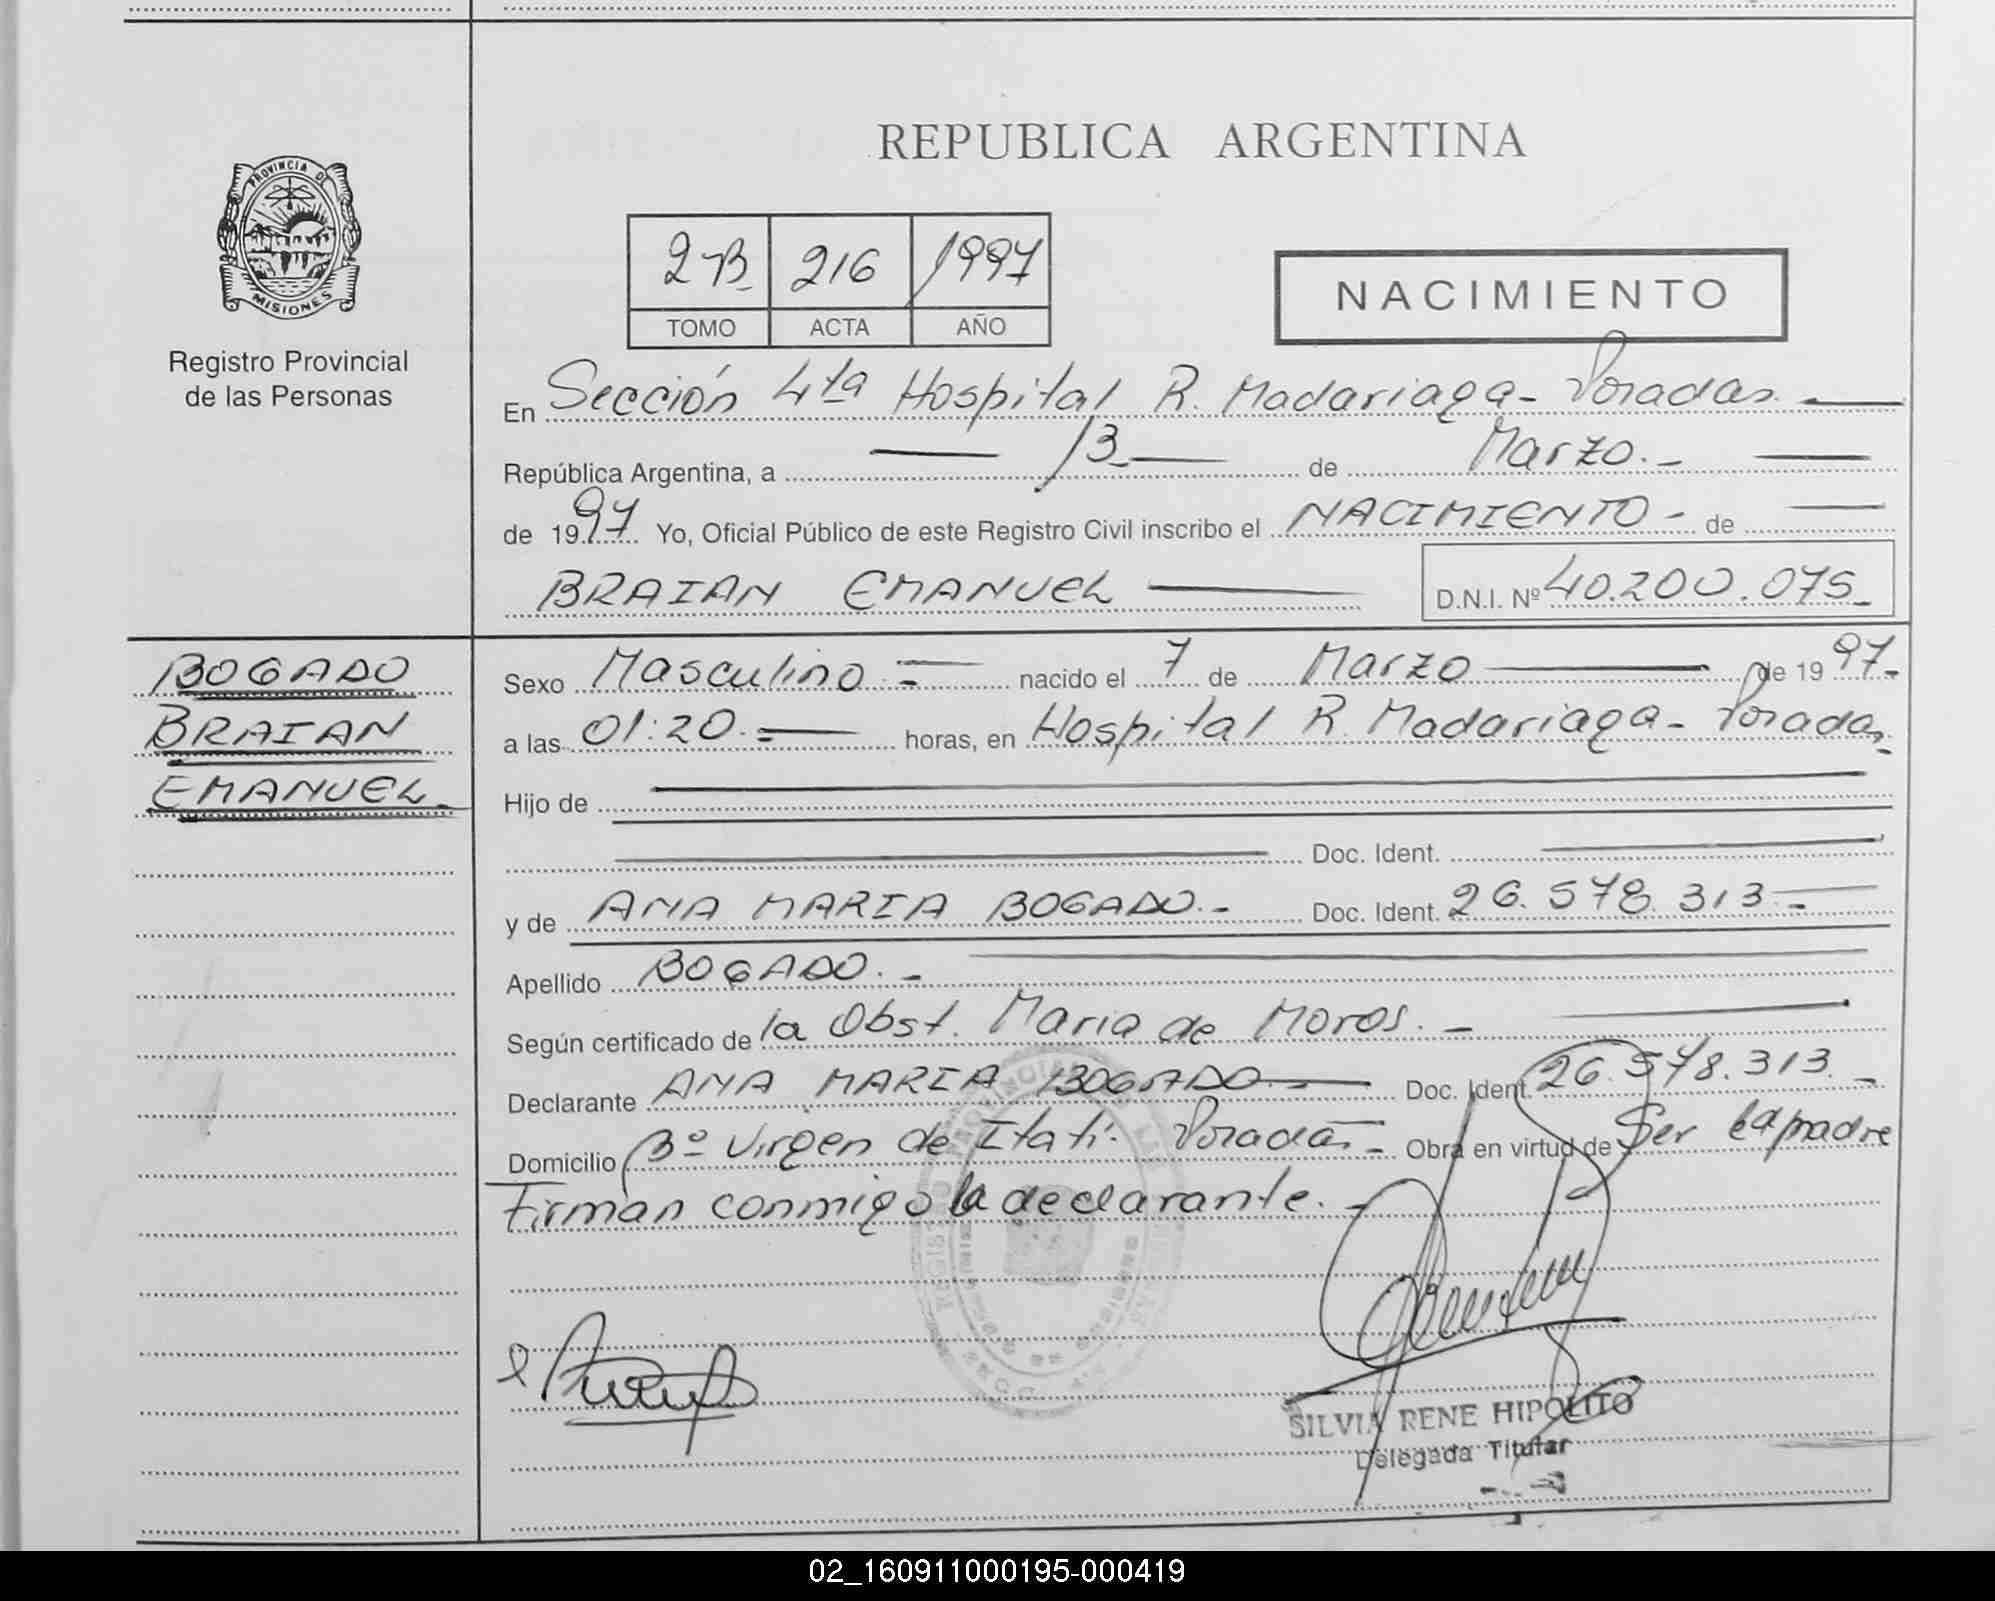 REPUBLICA ARGENTINA
PROVINCIA DE
MISIONES
Registro Provincial
de las Personas
2-B 216 1997
TOMO ACTA AÑO
NACIMIENTO
En Sección 4ta Hospital R. Madariaga - Posadas.
República Argentina, a 13 de Marzo.-
de 1997 Yo, Oficial Público de este Registro Civil inscribo el NACIMIENTO - de
BRAIAN EMANUEL D.N.I. Nº 40.200.075
BOGADO
BRAIAN
EMANUEL
Sexo Masculino nacido el 7 de Marzo de 1997.-
a las 01:20 horas, en Hospital R. Madariaga - Posadas
Hijo de
Doc. Ident.
y de ANA MARIA BOGADO.- Doc. Ident. 26.578.313
Apellido BOGADO.-
Según certificado de la Obst. Maria de Moros.-
Declarante ANA MARIA BOGADO Doc. Ident. 26.578.313.-
Domicilio Bº Virgen de Itatí. Posadas Obra en virtud de Ser la madre
Firman conmigo la declarante.-
SILVIA RENE HIPOLITO
Delegada Titular
02_160911000195-000419